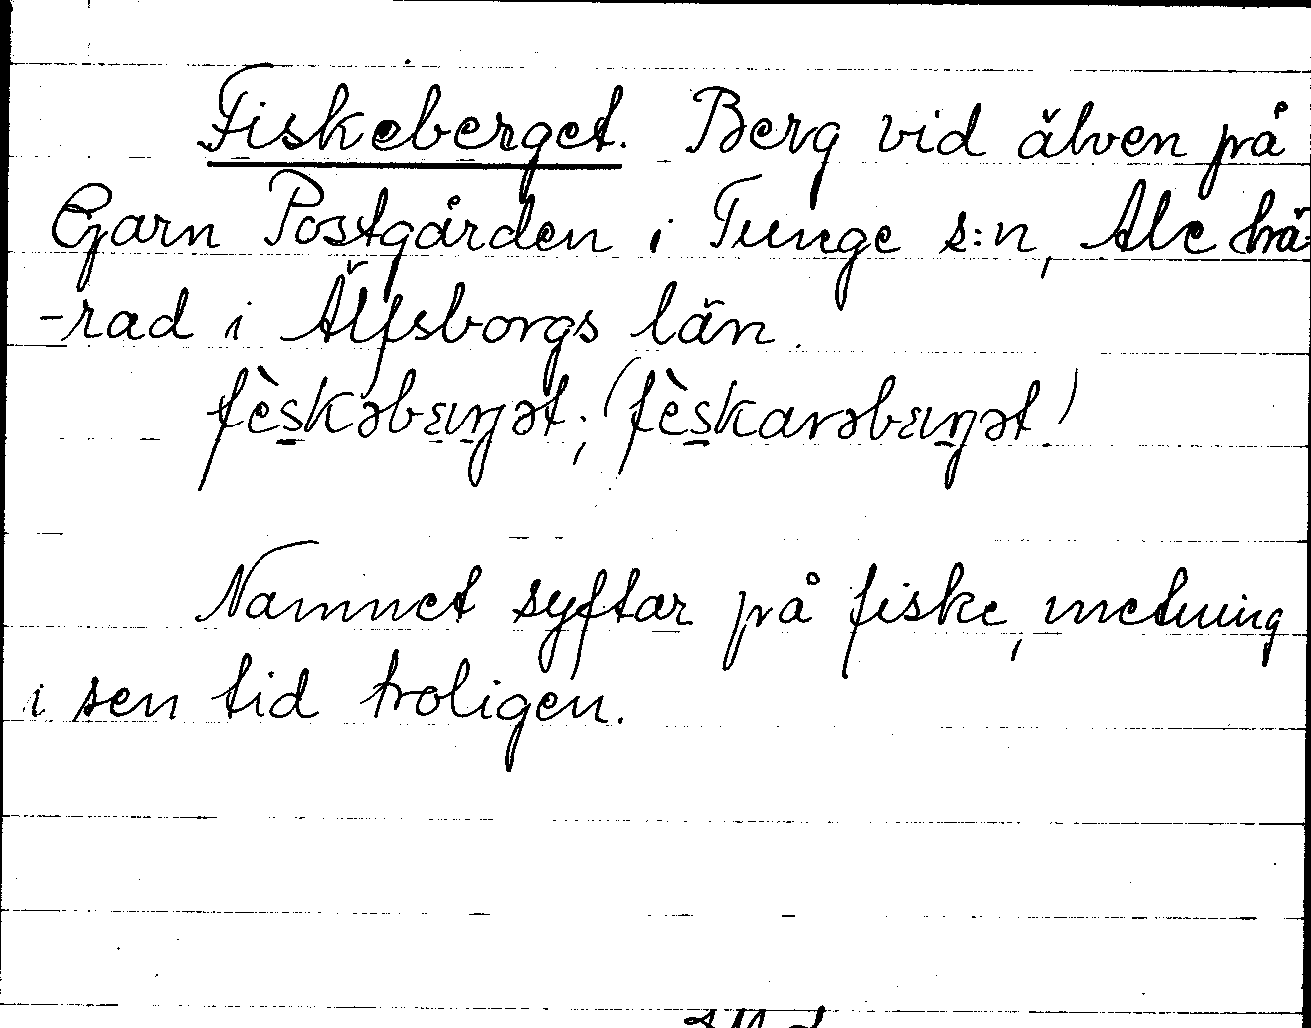 Fiskeberget. Berg vid älven på
Garn Postgården i Tunge s:n, Ale hä-
-rad i Älfsborgs län.
fèskəbæŋət; (fèskarəbæŋət)
Namnet syftar på fiske, metning
i sen tid troligen.